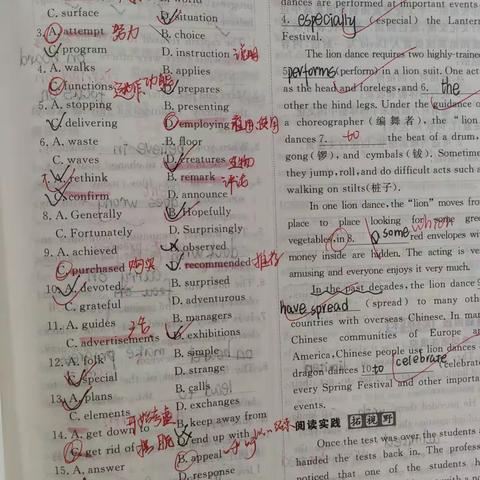 C. surface D. situation
3. A. attempt 努力 B. choice
C. program D. instruction 说明
4. A. walks B. applies
C. functions 运作 功能 D. prepares
5. A. stopping B. presenting
C. delivering D. employing 雇用 使用
6. A. waste B. floor
C. waves D. creatures 生物
7. A. rethink B. remark 评论
C. confirm D. announce
8. A. Generally B. Hopefully
C. Fortunately D. Surprisingly
9. A. achieved B. observed
C. purchased 购买 D. recommended 推荐
10. A. devoted B. surprised
C. grateful D. adventurous
11. A. guides B. managers
C. advertisements 广告 D. exhibitions
12. A. folk B. simple
C. special D. strange
13. A. plans B. calls
C. elements D. exchanges
14. A. get down to 开始考虑 B. keep away from
C. get rid of 摆脱 D. end up with
15. A. answer B. appeal
D. response
dances are performed at important events
4. especially (especial) the Lantern
Festival.
The lion dance requires two highly-trained
5. performs (perform) in a lion suit. One acts
as the head and forelegs, and 6. the
other the hind legs. Under the guidance of
a choreographer (编舞者), the "lion
dances 7. to the beat of a drum,
gong(锣), and cymbals(钹). Sometimes
they jump, roll, and do difficult acts such as
walking on stilts(桩子).
In one lion dance, the "lion" moves from
place to place looking for some green
vegetables, in 8. some which red envelopes with
money inside are hidden. The acting is very
amusing and everyone enjoys it very much.
In the past decades, the lion dance 9.
have spread (spread) to many other
countries with overseas Chinese. In many
Chinese communities of Europe and
America, Chinese people use lion dances
dragon dances 10. to celebrate (celebrate)
every Spring Festival and other important
events.
阅读实践 拓视野
Once the test was over the students
handed the tests back in. The professor
noticed that one of the students